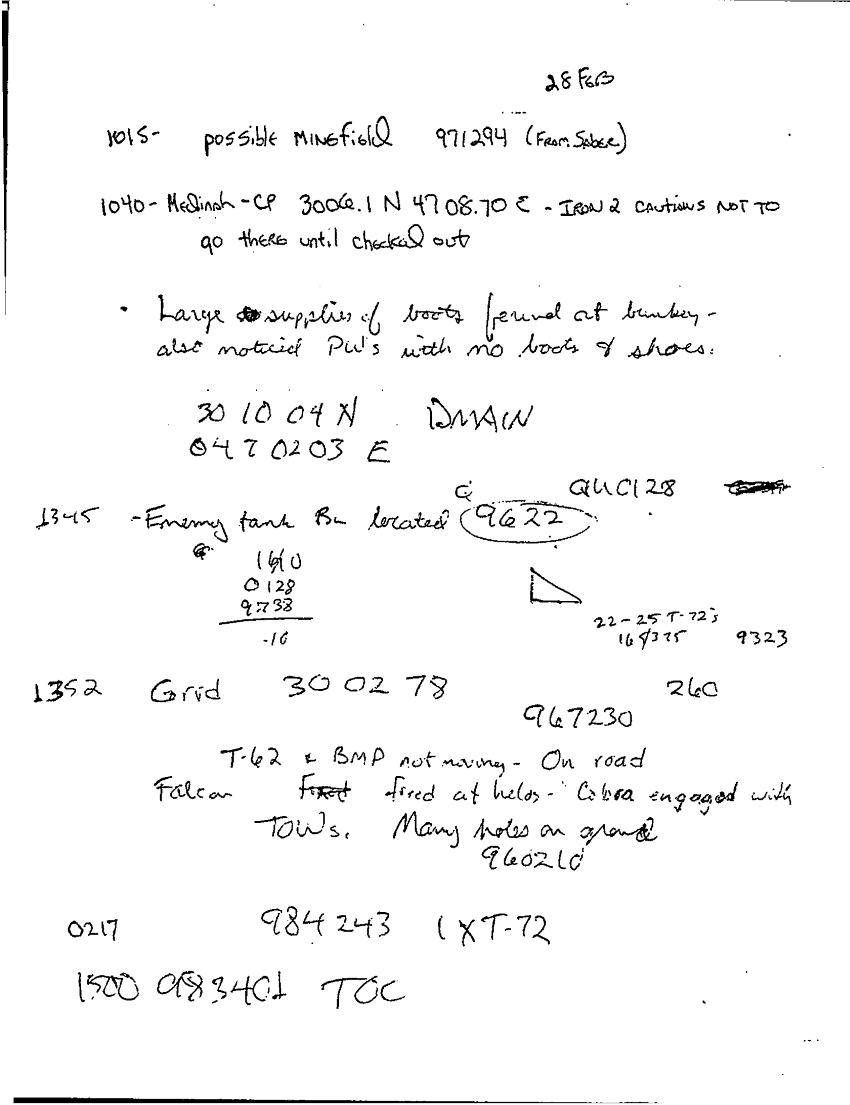 28 FEB
1015- POSSIBLE MINEFIELD 971294 (FROM SABER)
1040- MEDINAH-CP 3006.1 N 4708.70 E - IRON 2 CAUTIONS NOT TO
go there until checked out
• Large supplies of boots found at bunkey -
also noticed PW's with no boots & shoes.
30 10 04 N DMAIN
047 02 03 E
Q QUC128
1345 - Enemy tank Bn located 9622
0128
9738
-10
22-25 T-72's
9323
1352 Grid 30 02 78 260
967230
T-62 & BMP not moving - On road
Falcon fired at helos - Cobra engaged with
TOWs. Many holes on ground
960210
0217 984243 1 X T-72
1500 983401 TOC